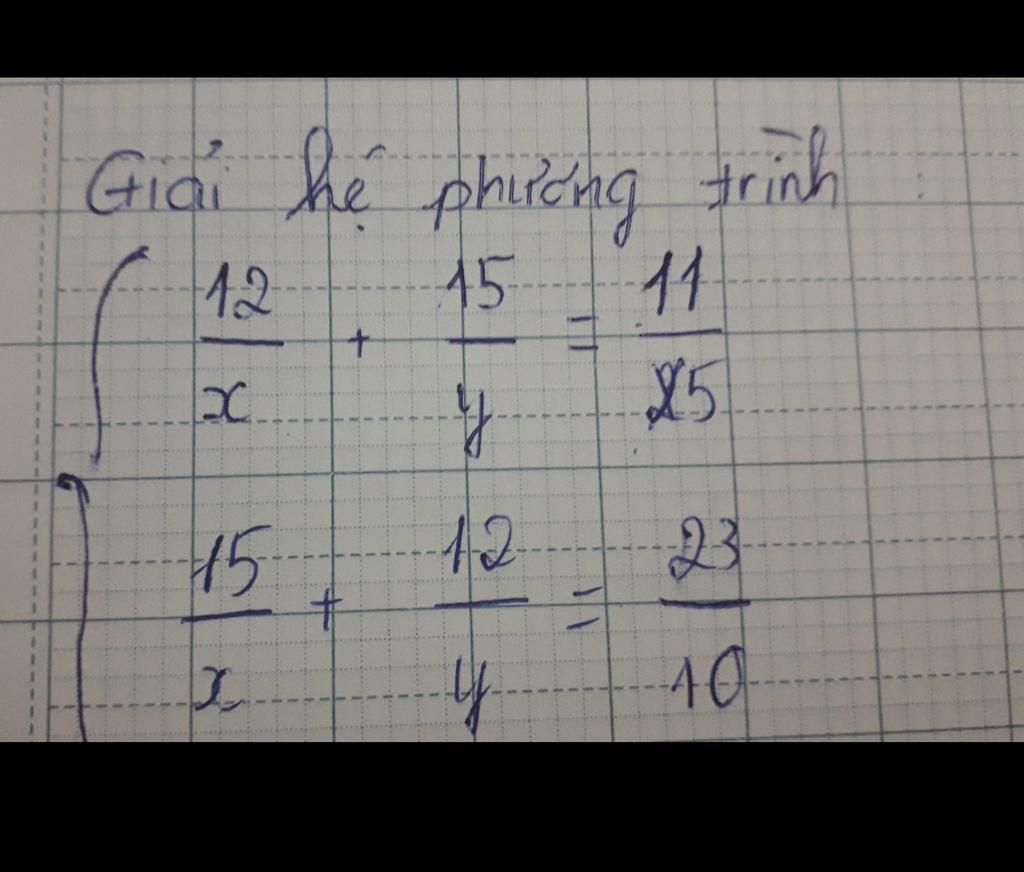 Giải hệ phương trình :
12/x + 15/y = 11/5
15/x + 12/y = 23/10